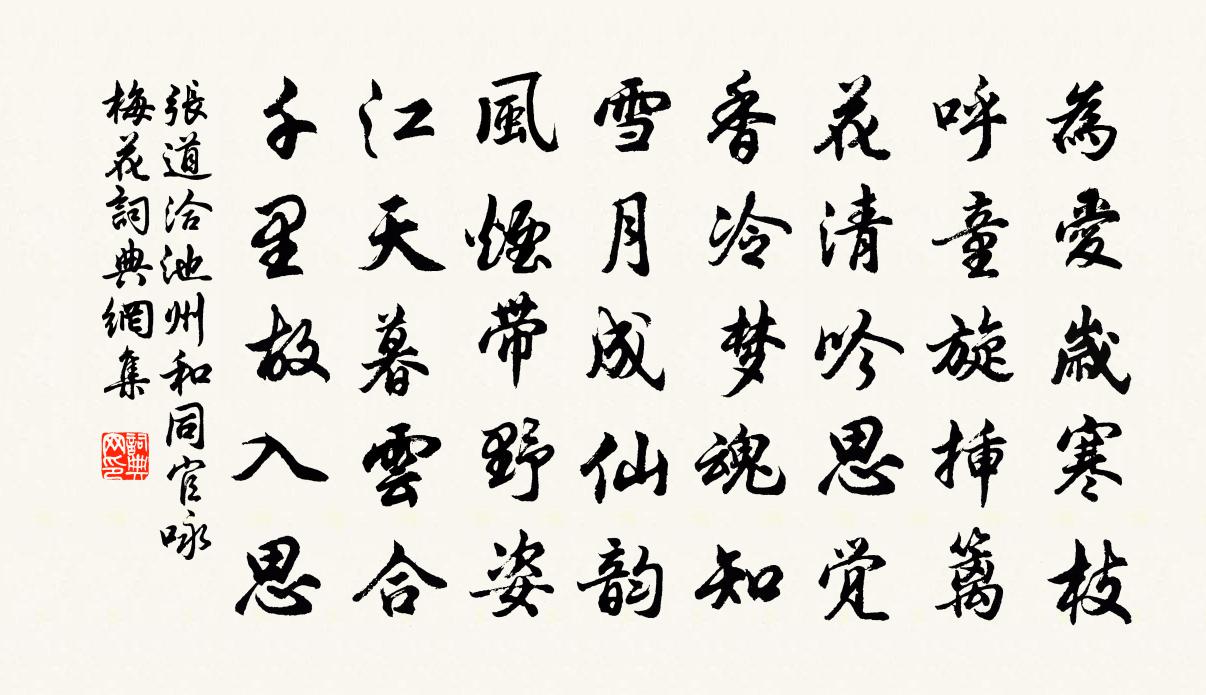 為愛歲寒枝
呼童旋挿篱
花清吟思觉
香冷梦魂知
雪月成仙韵
風煙带野姿
江天暮雲合
千里故入思
張道洽池州和同官咏
梅花詞典網集
詞典网印